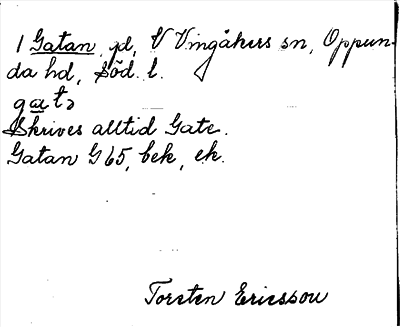 1 Gatan, gd, V Vingåkers sn, Oppun-
da hd, Söd. l.
gatə
Skrives alltid Gate.
Gatan G 65, bek, ek.
Torsten Ericsson